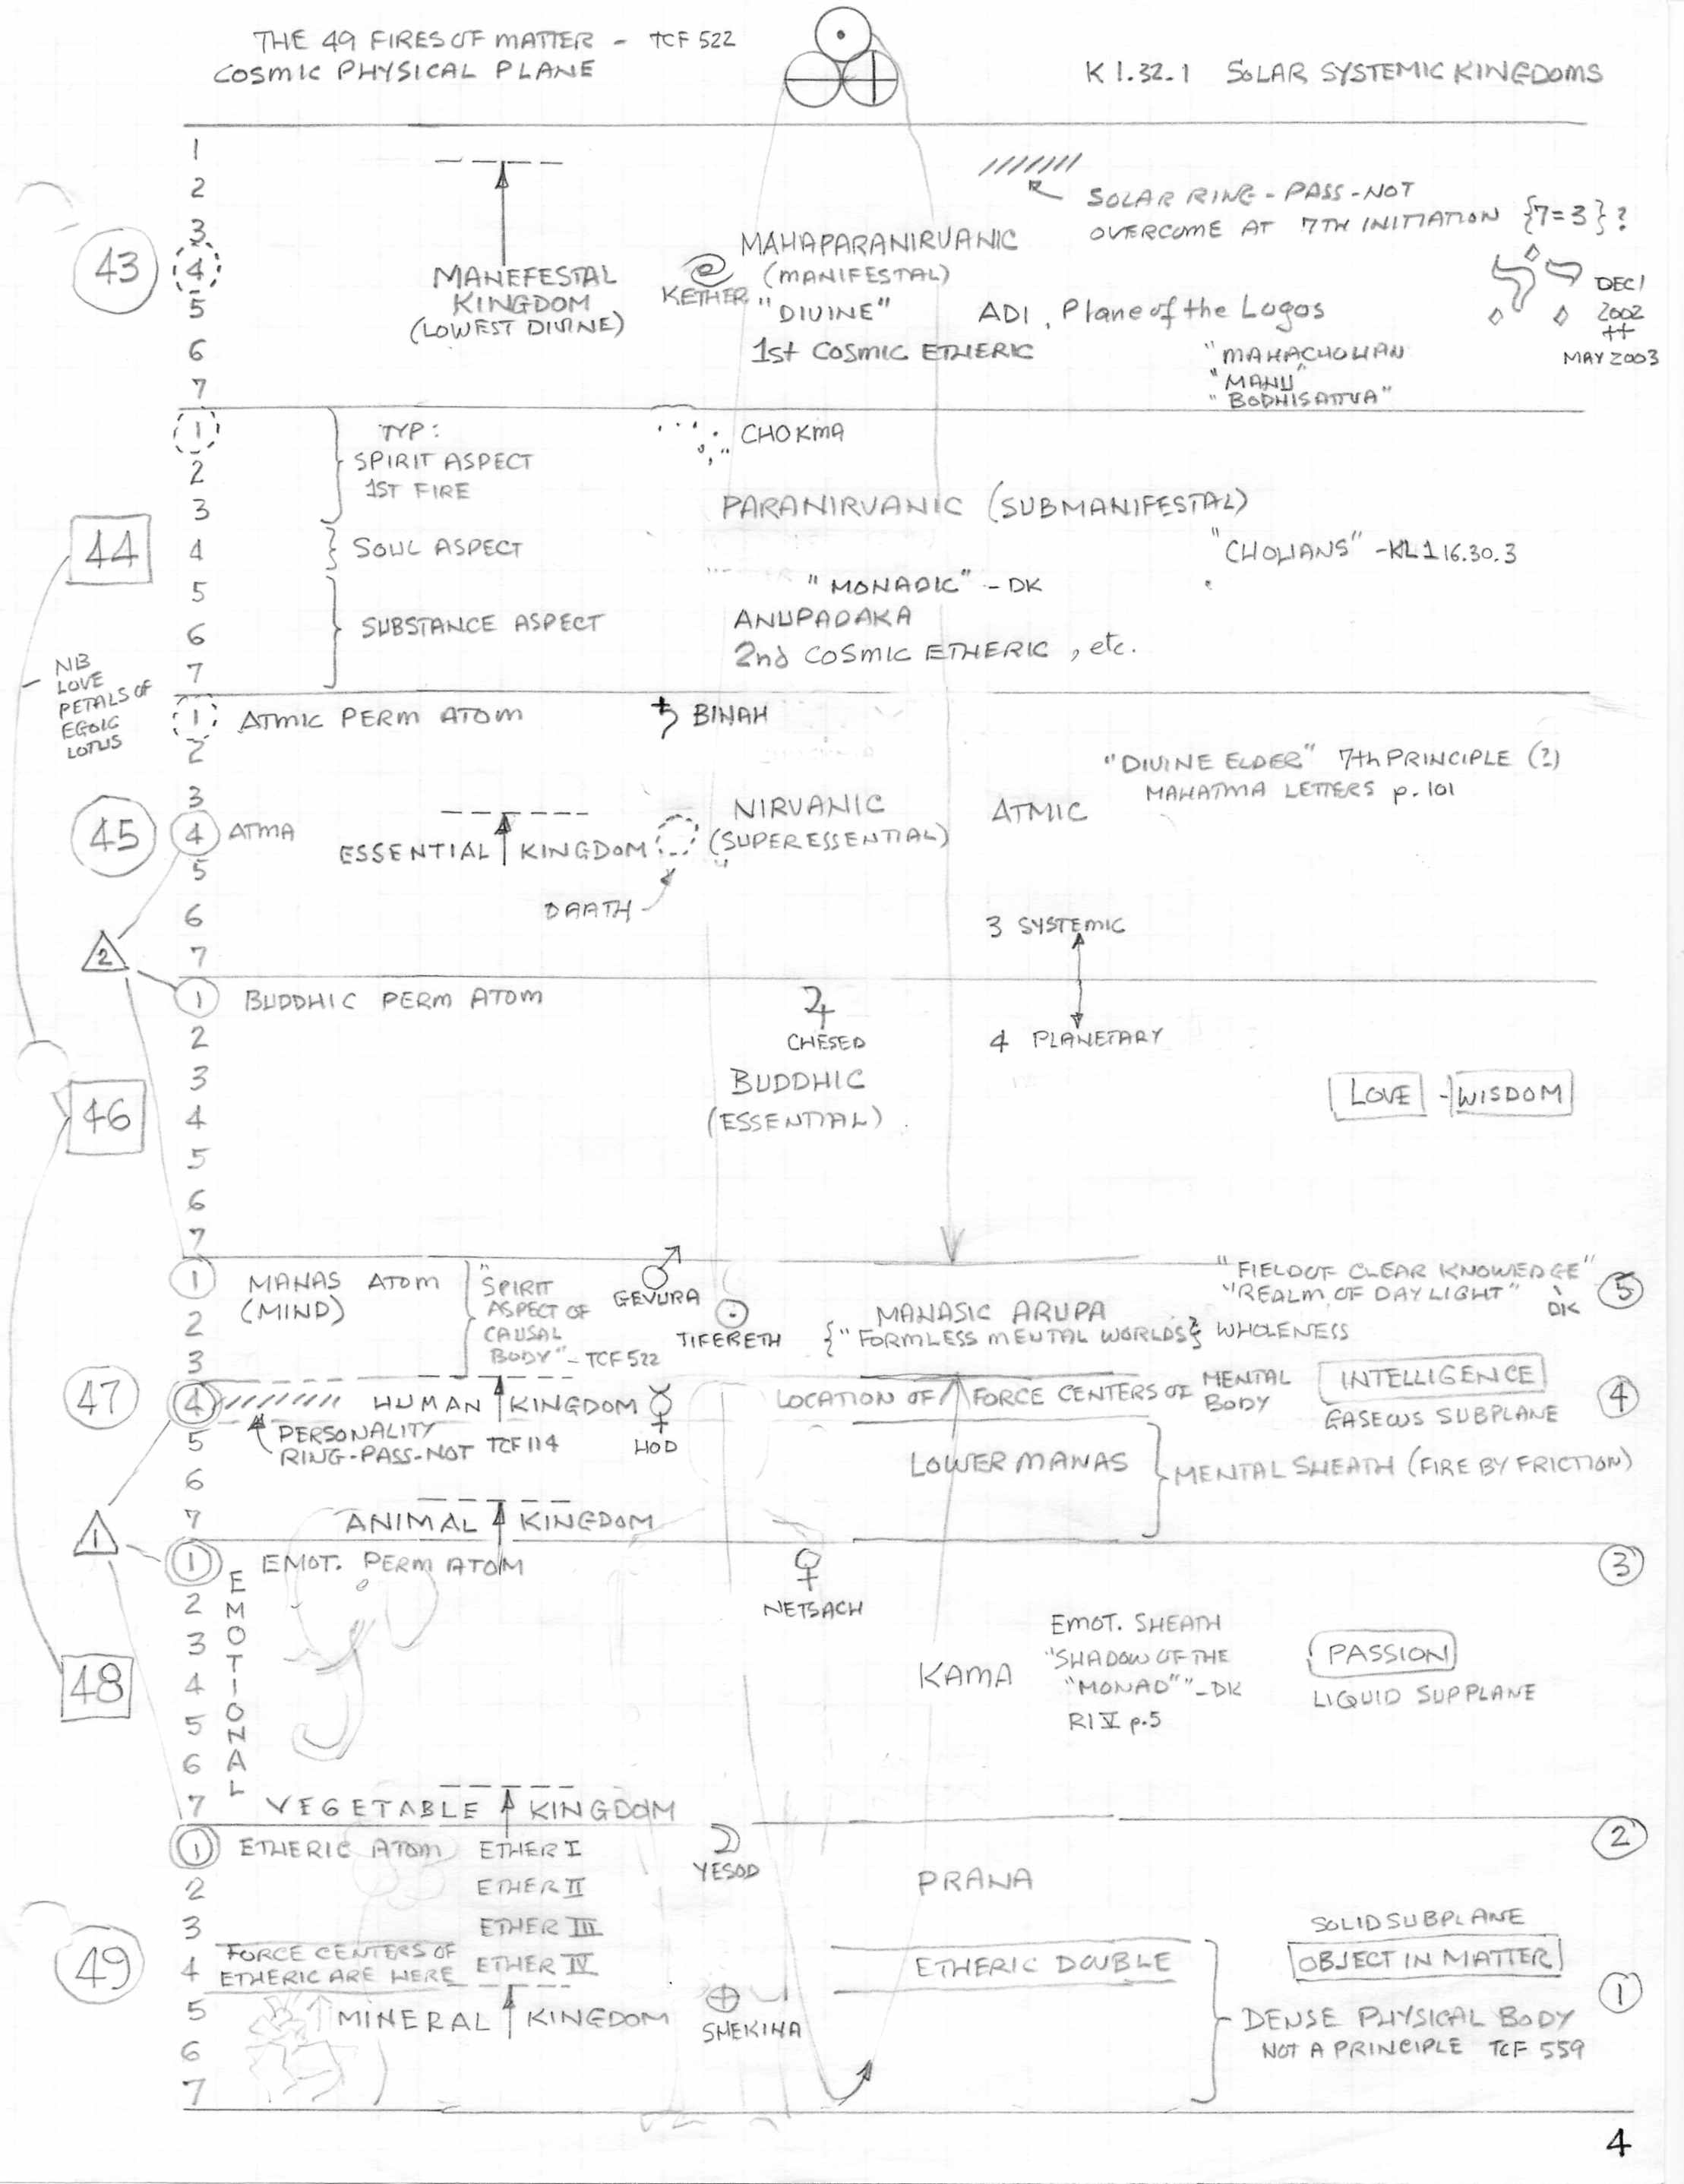 THE 49 FIRES OF MATTER - TCF 522
COSMIC PHYSICAL PLANE
K 1.32.1 SOLAR SYSTEMIC KINGDOMS
1
2
3
4
5
6
7
43
MANEFESTAL
KINGDOM
(LOWEST DIVINE)
KETHER
MAHAPARANIRVANIC
(MANIFESTAL)
"DIVINE"
1st COSMIC ETHERIC
ADI, Plane of the Logos
SOLAR RING-PASS-NOT
OVERCOME AT 7TH INITIATION {7=3}?
DEC 1
2002
++
MAY 2003
"MAHACHOHAN
"MANU"
"BODHISATTVA"
1
2
3
4
5
6
7
44
TYP:
SPIRIT ASPECT
1ST FIRE
SOUL ASPECT
SUBSTANCE ASPECT
CHOKMA
PARANIRVANIC (SUBMANIFESTAL)
"CHOHANS" -KL1 16.30.3
"MONADIC" - DK
ANUPADAKA
2nd COSMIC ETHERIC, etc.
NB
LOVE
PETALS OF
EGOIC
LOTUS
1 ATMIC PERM ATOM
2
3
4 ATMA
5
6
7
45
BINAH
"DIVINE ELDER" 7th PRINCIPLE (?)
MAHATMA LETTERS p. 101
NIRVANIC
(SUPERESSENTIAL)
ATMIC
ESSENTIAL KINGDOM
DAATH
3 SYSTEMIC
4 PLANETARY
2
1 BUDDHIC PERM ATOM
2
3
4
5
6
7
46
CHESED
BUDDHIC
(ESSENTIAL)
LOVE - WISDOM
1 MANAS ATOM
(MIND)
2
3
4
5
6
7
47
"SPIRIT
ASPECT OF
CAUSAL
BODY" - TCF 522
GEVURA
TIFERETH
MANASIC ARUPA
{"FORMLESS MENTAL WORLDS} WHOLENESS
"FIELD OF CLEAR KNOWLEDGE"
"REALM OF DAYLIGHT"
DK
5
HUMAN KINGDOM
HOD
PERSONALITY
RING-PASS-NOT TCF 114
LOCATION OF FORCE CENTERS OF MENTAL
BODY
INTELLIGENCE
GASEOUS SUBPLANE
4
LOWER MANAS
MENTAL SHEATH (FIRE BY FRICTION)
ANIMAL KINGDOM
1
1 EMOT. PERM ATOM
2
3
4
5
6
7
48
EMOTIONAL
NETSACH
3
KAMA
EMOT. SHEATH
"SHADOW OF THE
"MONAD"" - DK
RI V p.5
PASSION
LIQUID SUPPLANE
VEGETABLE KINGDOM
1 ETHERIC ATOM ETHER I
2 ETHER II
3 ETHER III
4 ETHER IV
5
6
7
49
FORCE CENTERS OF
ETHERIC ARE HERE
YESOD
2
PRANA
ETHERIC DOUBLE
SOLID SUBPLANE
OBJECT IN MATTER
1
MINERAL KINGDOM
SHEKINA
DENSE PHYSICAL BODY
NOT A PRINCIPLE TCF 559
4